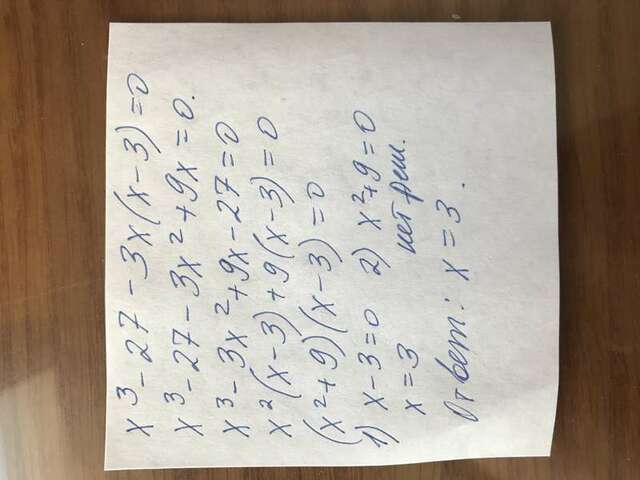 x³ - 27 - 3x(x - 3) = 0
x³ - 27 - 3x² + 9x = 0.
x³ - 3x² + 9x - 27 = 0
x²(x - 3) + 9(x - 3) = 0
(x² + 9)(x - 3) = 0
1) x - 3 = 0 2) x² + 9 = 0
x = 3 нет реш.
Ответ: x = 3.